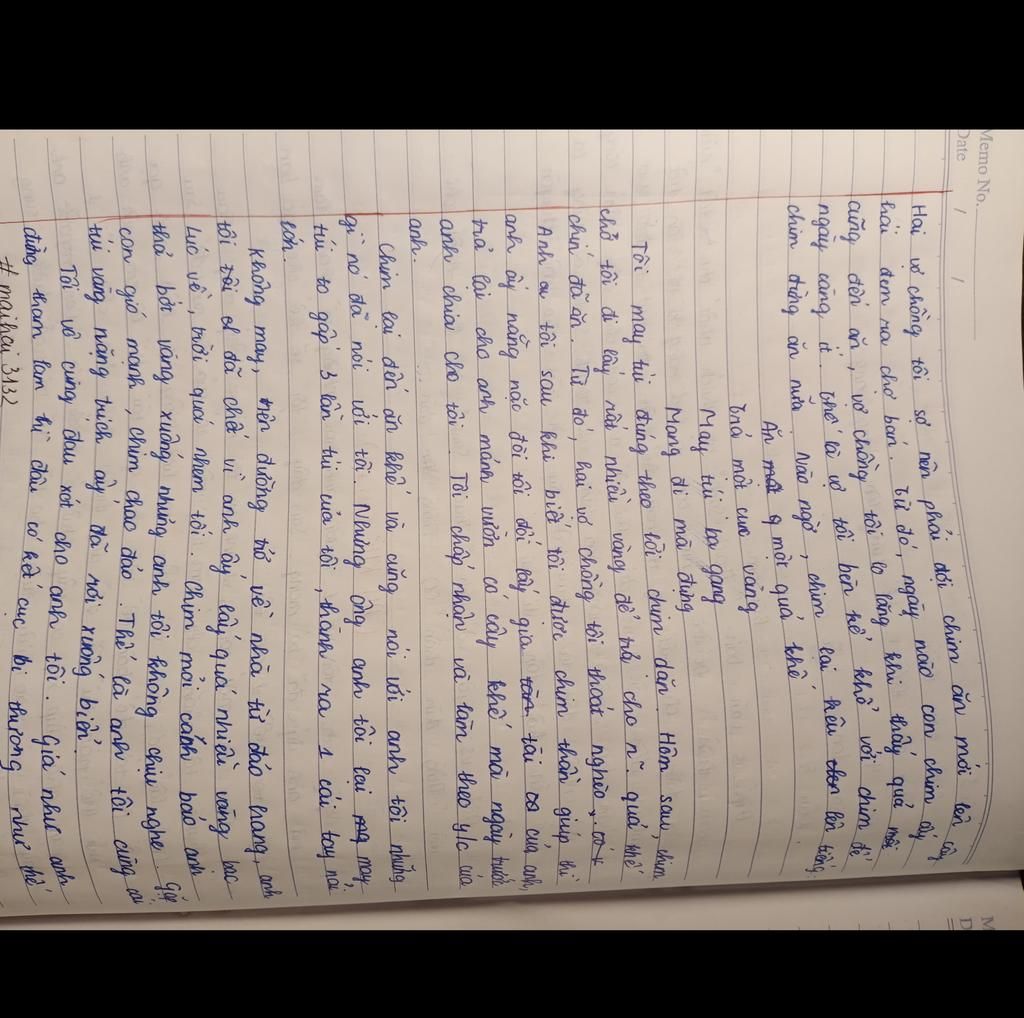 Memo No.
Date / /
Hai vợ chồng tôi sợ nên phải đợi chim ăn mới lên cây
hái đem ra chợ bán. Từ đó, ngày nào con chim ấy
cũng đến ăn, vợ chồng tôi lo lắng khi thấy quả mỗi
ngày càng ít. Thế là vợ tôi bèn kể khổ với chim để
chim đừng ăn nữa. Nào ngờ, chim lại kêu lên tiếng:
Ăn một quả khế
Trả một cục vàng
May túi ba gang
Mang đi mà đựng
Tôi may túi đúng theo lời chim dặn. Hôm sau, chim
chở tôi đi lấy rất nhiều vàng để trả cho n~ quả khế
chín đã ăn. Từ đó, hai vợ chồng tôi thoát nghèo,
Anh tôi sau khi biết tôi được chim thần giúp thì
anh ấy nằng nặc đòi tôi đổi lấy gia tài của anh,
trả lại cho anh mảnh vườn có cây khế mà ngày trước
anh chia cho tôi. Tôi chấp nhận và làm theo y/c của
anh.
Chim lại đến ăn khế và cũng nói với anh tôi những
gì nó đã nói với tôi. Nhưng ông anh tôi lại may
túi to gấp 3 lần túi của tôi, thành ra 1 cái tay nải
lớn.
Không may, trên đường trở về nhà từ đảo hoang, anh
tôi đã chết vì anh ấy lấy quá nhiều vàng bạc
Lúc về, trời quá nhem tối. Chim mỏi cánh bảo anh
thả bớt vàng xuống nhưng anh tôi không chịu nghe. Gặp
cơn gió mạnh, chim chao đảo. Thế là anh tôi cùng cái
túi vàng nặng trịch ấy đã rơi xuống biển.
Tôi vô cùng đau xót cho anh tôi. Giá như anh
đừng tham lam thì đâu có kết cục bi thương như thế
# maihai 3132
M
D